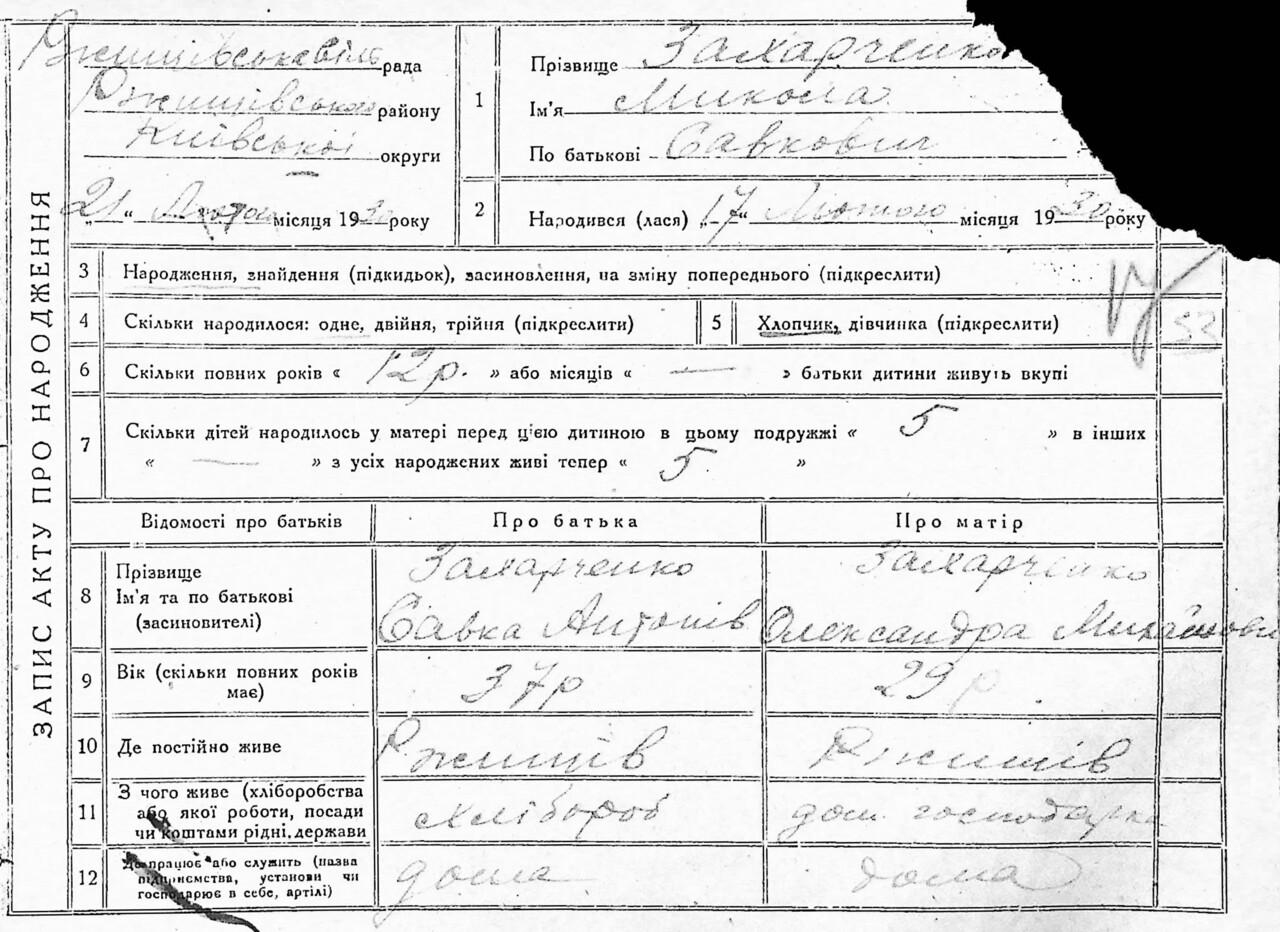 ЗАПИС АКТУ ПРО НАРОДЖЕННЯ
Ржищівська рада
Ржищівського району
Київської округи
21 " Лютого місяця 1930 року
1
Прізвище Захарченко
Ім'я Микола
По батькові Савкович
2
Народився (лася) "17" Лютого місяця 1930 року
3 Народження, знайдення (підкидьок), засиновлення, на зміну попереднього (підкреслити)
4 Скільки народилося: одне, двійня, трійня (підкреслити) 5 Хлопчик, дівчинка (підкреслити)
53
6 Скільки повних років « 12 р. » або місяців « — » батьки дитини живуть вкупі
7 Скільки дітей народилось у матері перед цією дитиною в цьому подружжі « 5 » в інших
« — » з усіх народжених живі тепер « 5 »
Відомості про батьків Про батька Про матір
8 Прізвище Захарченко Захарченко
Ім'я та по батькові Савка Антонів Олександра
(засиновителі)
9 Вік (скільки повних років має) 37 р 29 р
10 Де постійно живе Ржищів Ржищів
11 З чого живе (хліборобства хлібороб дом. господарка
або якої роботи, посади
чи коштами рідні, держави
12 Де працює або служить (назва дома дома
підприємства, установи чи
господарює в себе, артілі)